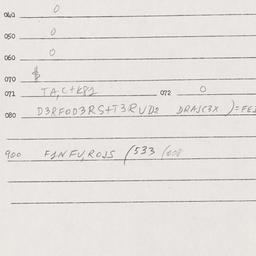 040 0
050 0
060 0
070 $
071 TA,C+KP1 072 0
080 D3RFOD3RS+T3RUD2 DRAJC3X )=FEJ
900 FINFUROJS (533